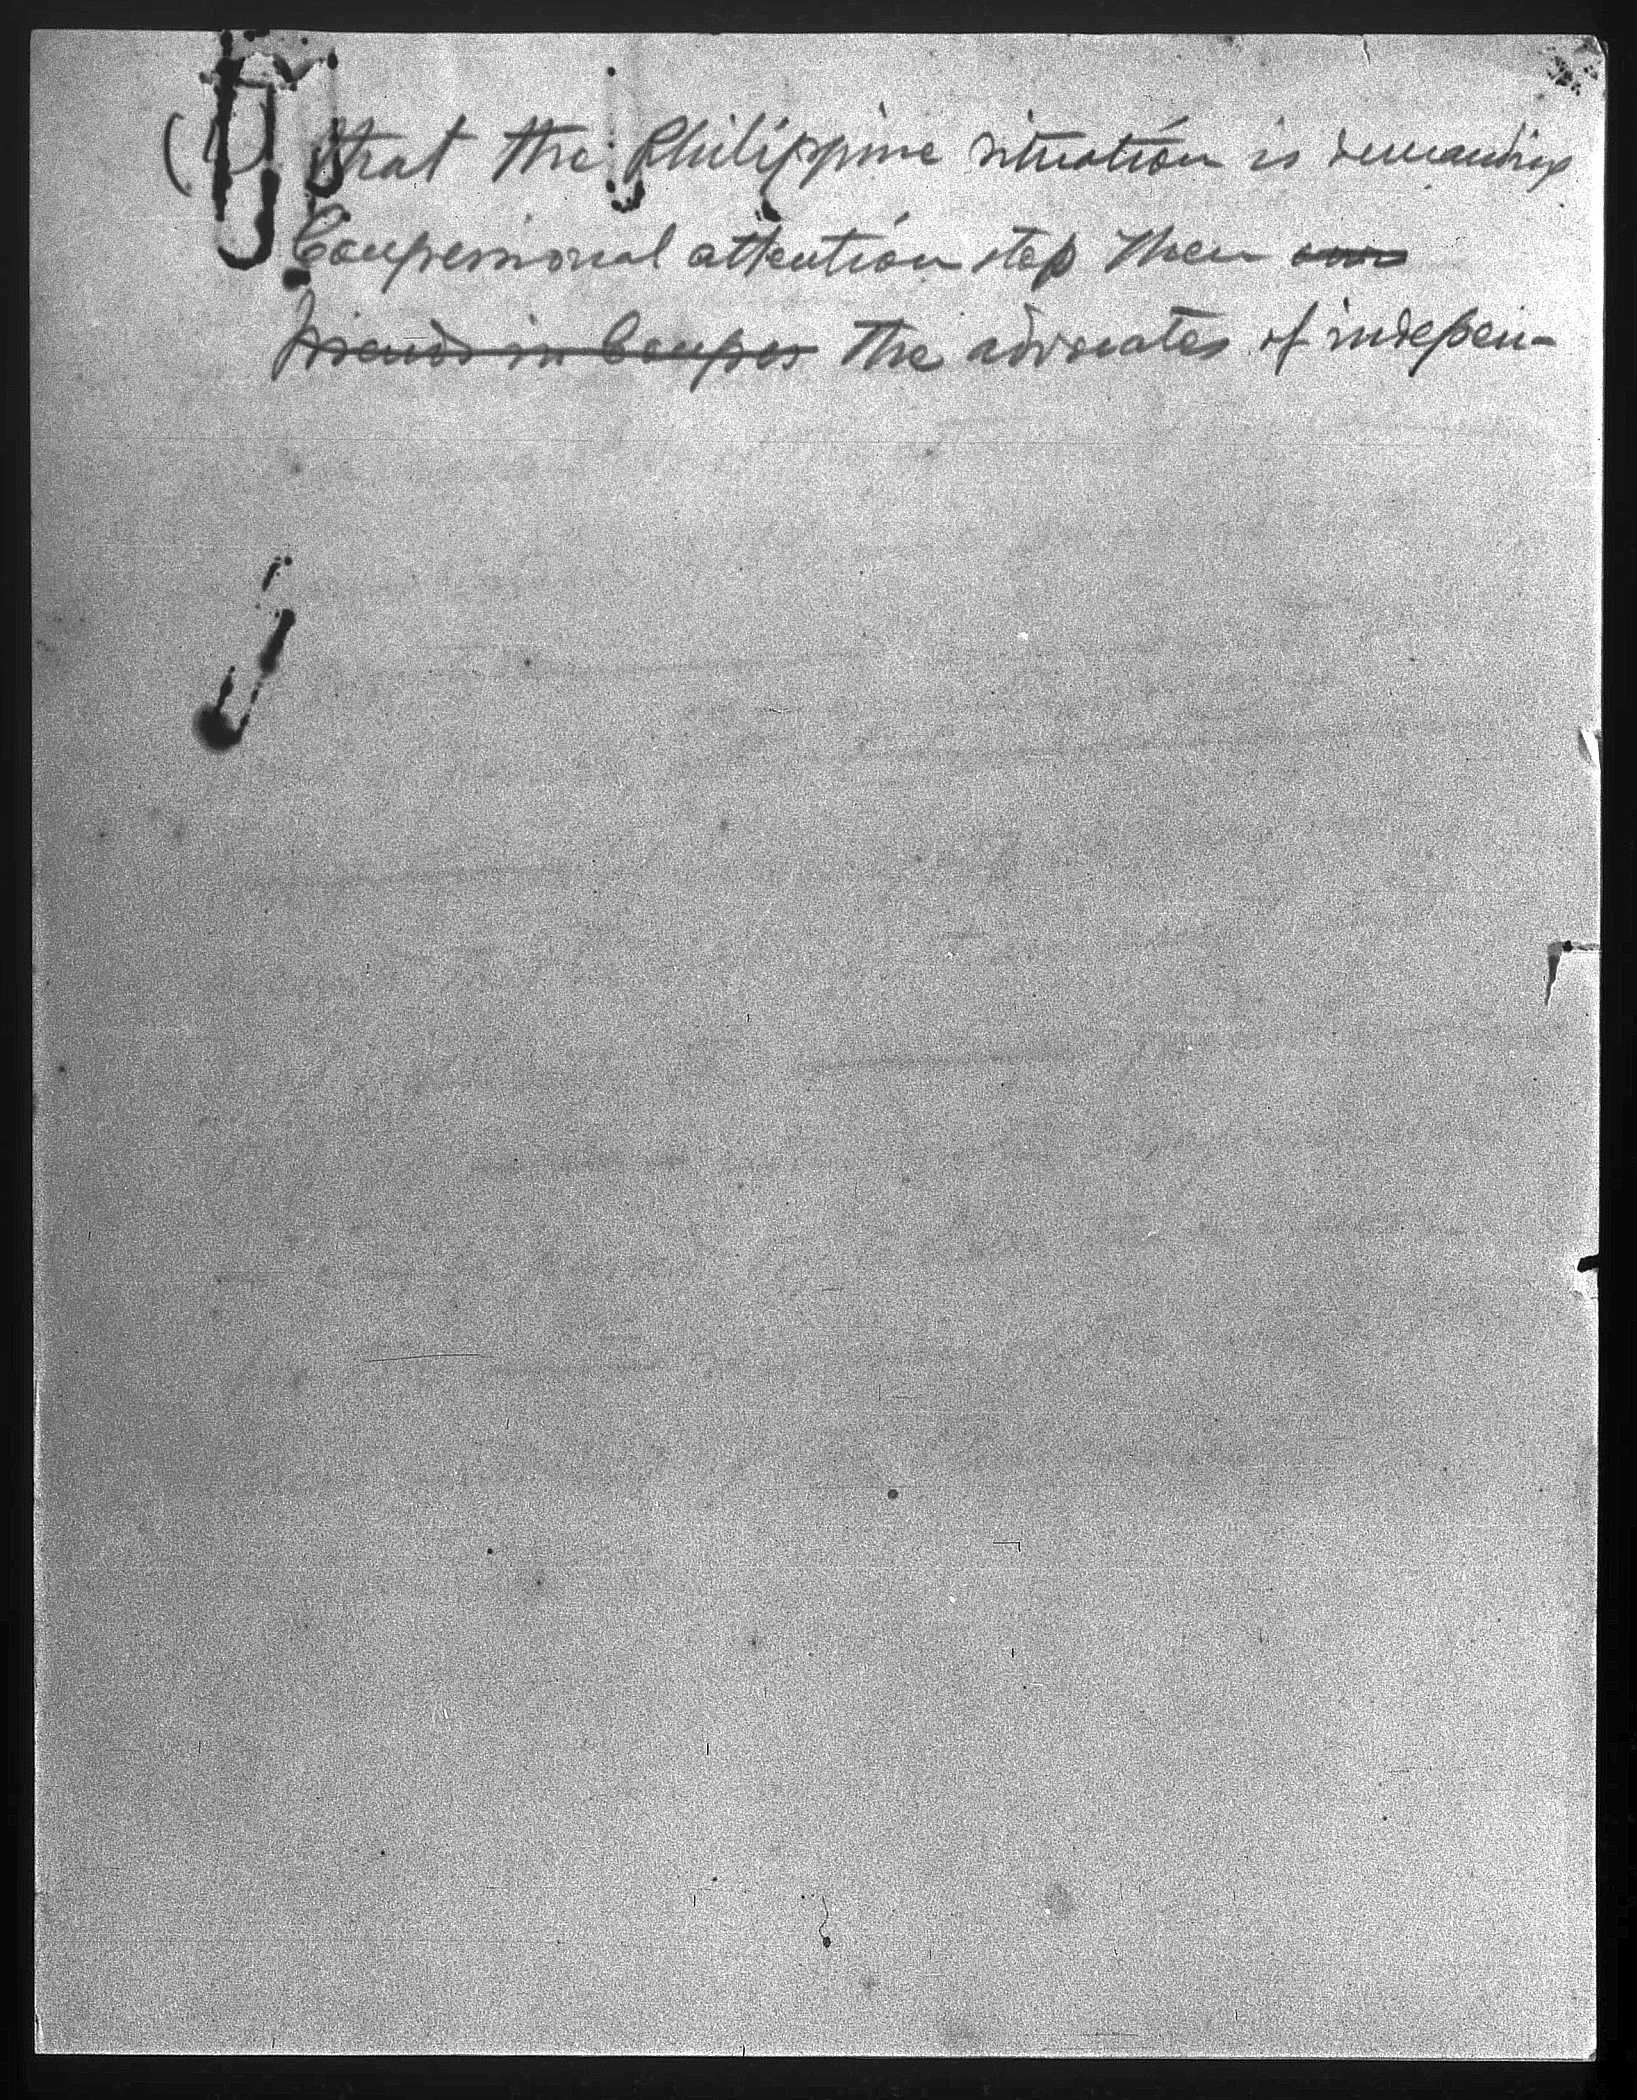 (1) that the Philippine situation is demanding
Congressional attention stop Then ~~our~~
~~friends in Congress~~ the advocates of indepen-